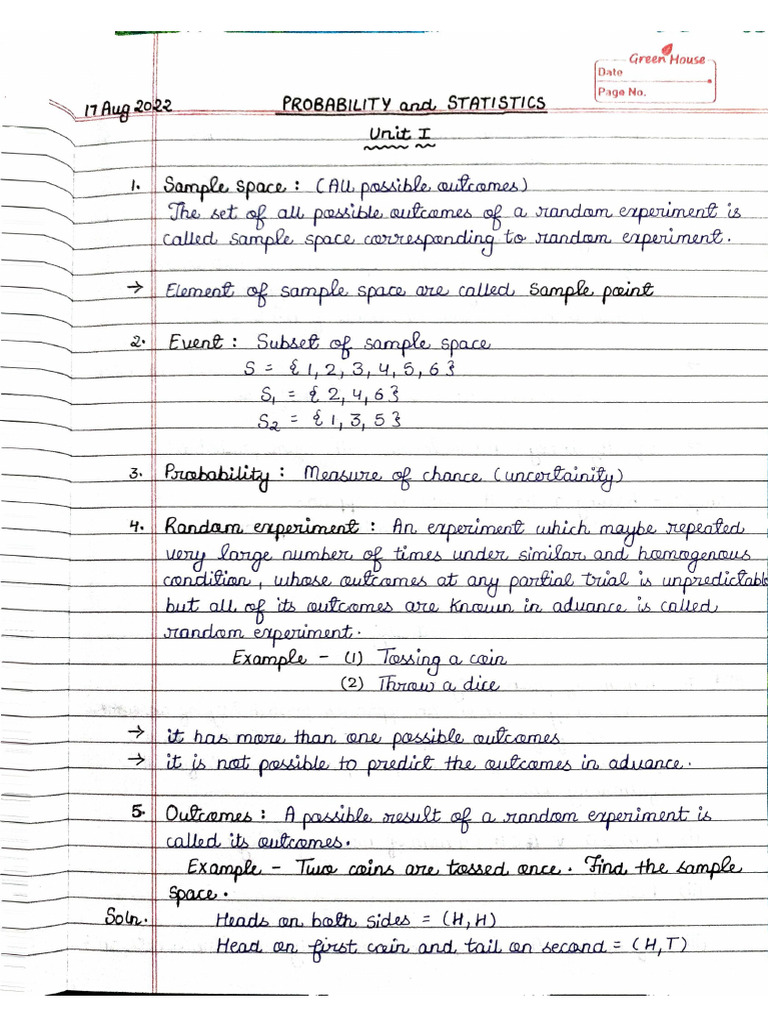 Green House
Date
Page No.
17 Aug 2022
PROBABILITY and STATISTICS
Unit I
1. Sample space : (All possible outcomes)
The set of all possible outcomes of a random experiment is
called sample space corresponding to random experiment.
→ Element of sample space are called sample point
2. Event : Subset of sample space
S = {1, 2, 3, 4, 5, 6}
S₁ = {2, 4, 6}
S₂ = {1, 3, 5}
3. Probability : Measure of chance (uncertainity)
4. Random experiment : An experiment which maybe repeated
very large number of times under similar and homogenous
condition, whose outcomes at any partial trial is unpredictabl
but all of its outcomes are known in advance is called
random experiment.
Example - (1) Tossing a coin
(2) Throw a dice
→ it has more than one possible outcomes
→ it is not possible to predict the outcomes in advance.
5. Outcomes : A possible result of a random experiment is
called its outcomes.
Example - Two coins are tossed once. Find the sample
space.
Soln. Heads on both sides = (H,H)
Head on first coin and tail on second = (H,T)